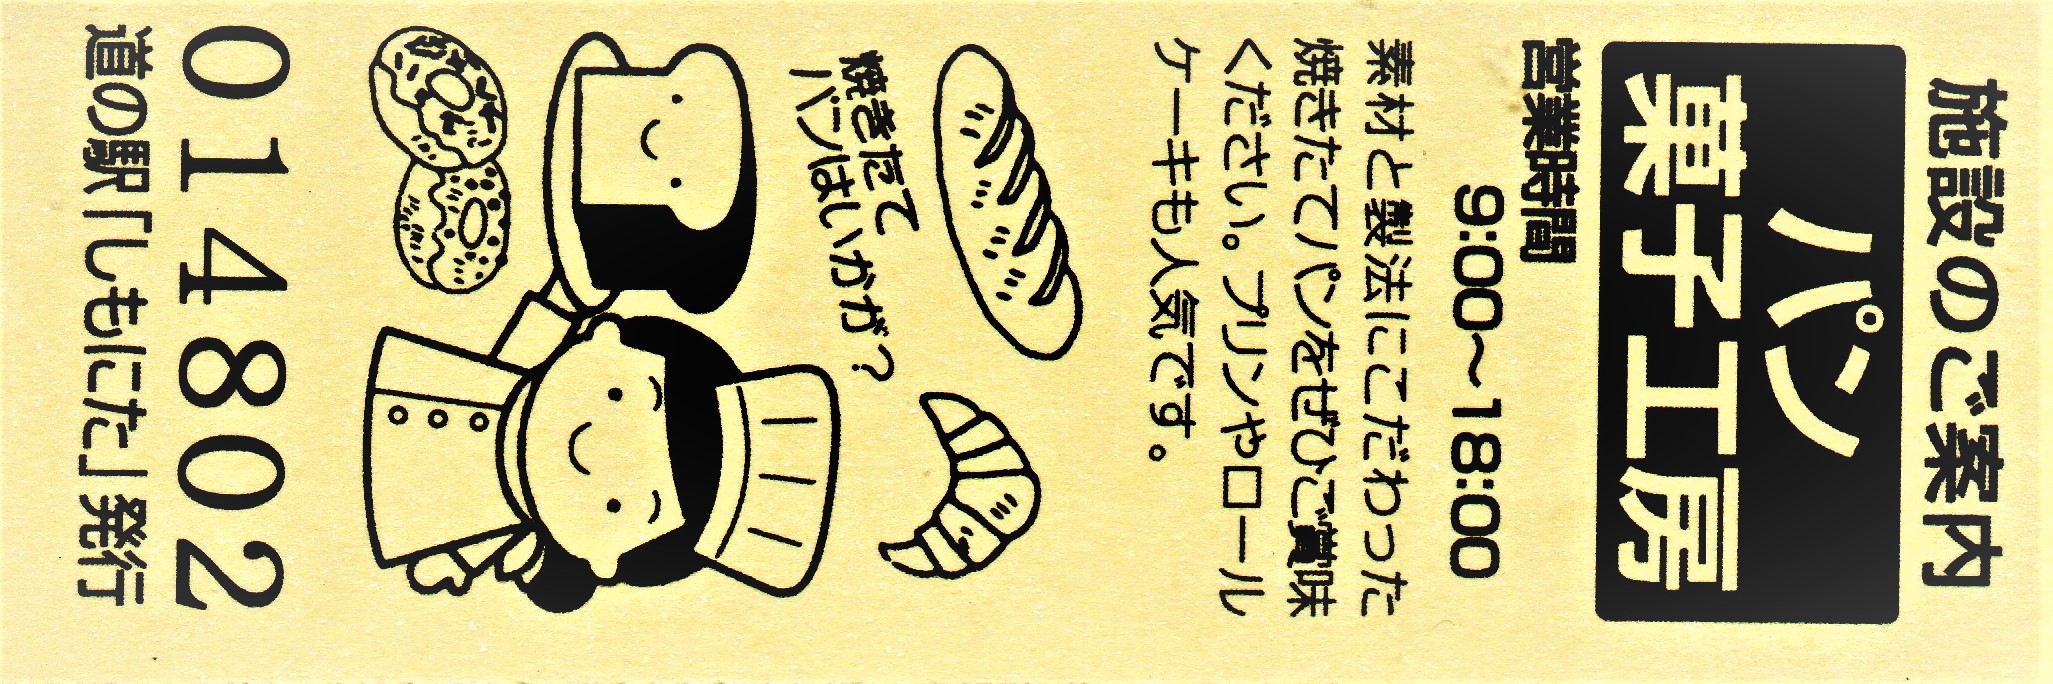 施設のご案内
パン
菓子工房
営業時間
9:00～18:00
素材と製法にこだわった
焼きたてパンをぜひご賞味
ください。プリンやロール
ケーキも人気です。
焼きたて
パンはいかが?
014802
道の駅「しもにた」発行